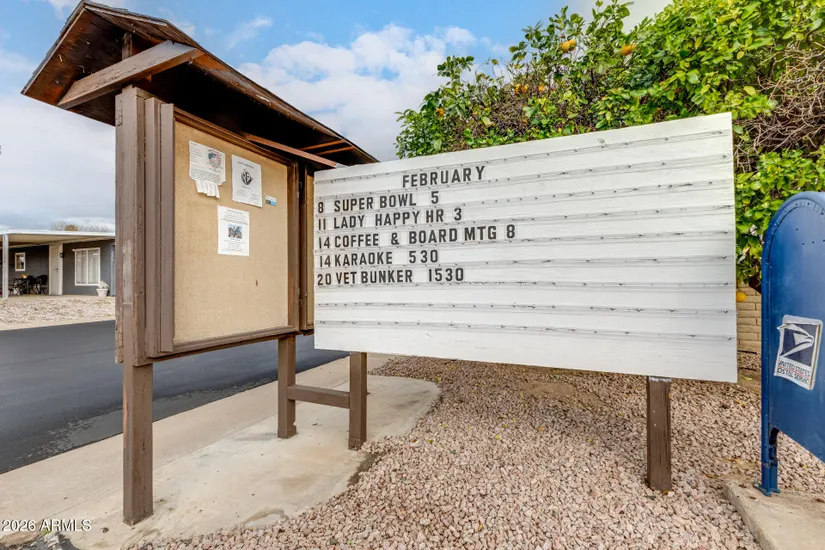 FEBRUARY
8 SUPER BOWL 5
11 LADY HAPPY HR 3
14 COFFEE & BOARD MTG 8
14 KARAOKE 530
20 VET BUNKER 1530
UNITED STATES
POSTAL SERVICE
2026 ARMLS